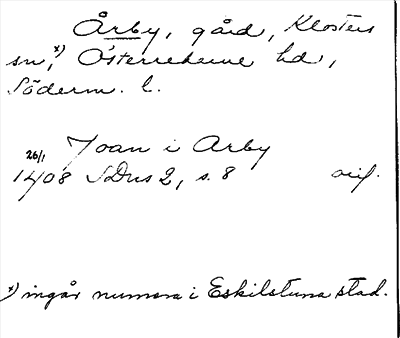 Årby, gård, Klosters
sn,x) Österrekarne hd,
Söderm. l.
Joan i Arby
26/1
1408 SDns 2, s. 8 orig.
x) ingår numera i Eskilstuna stad.